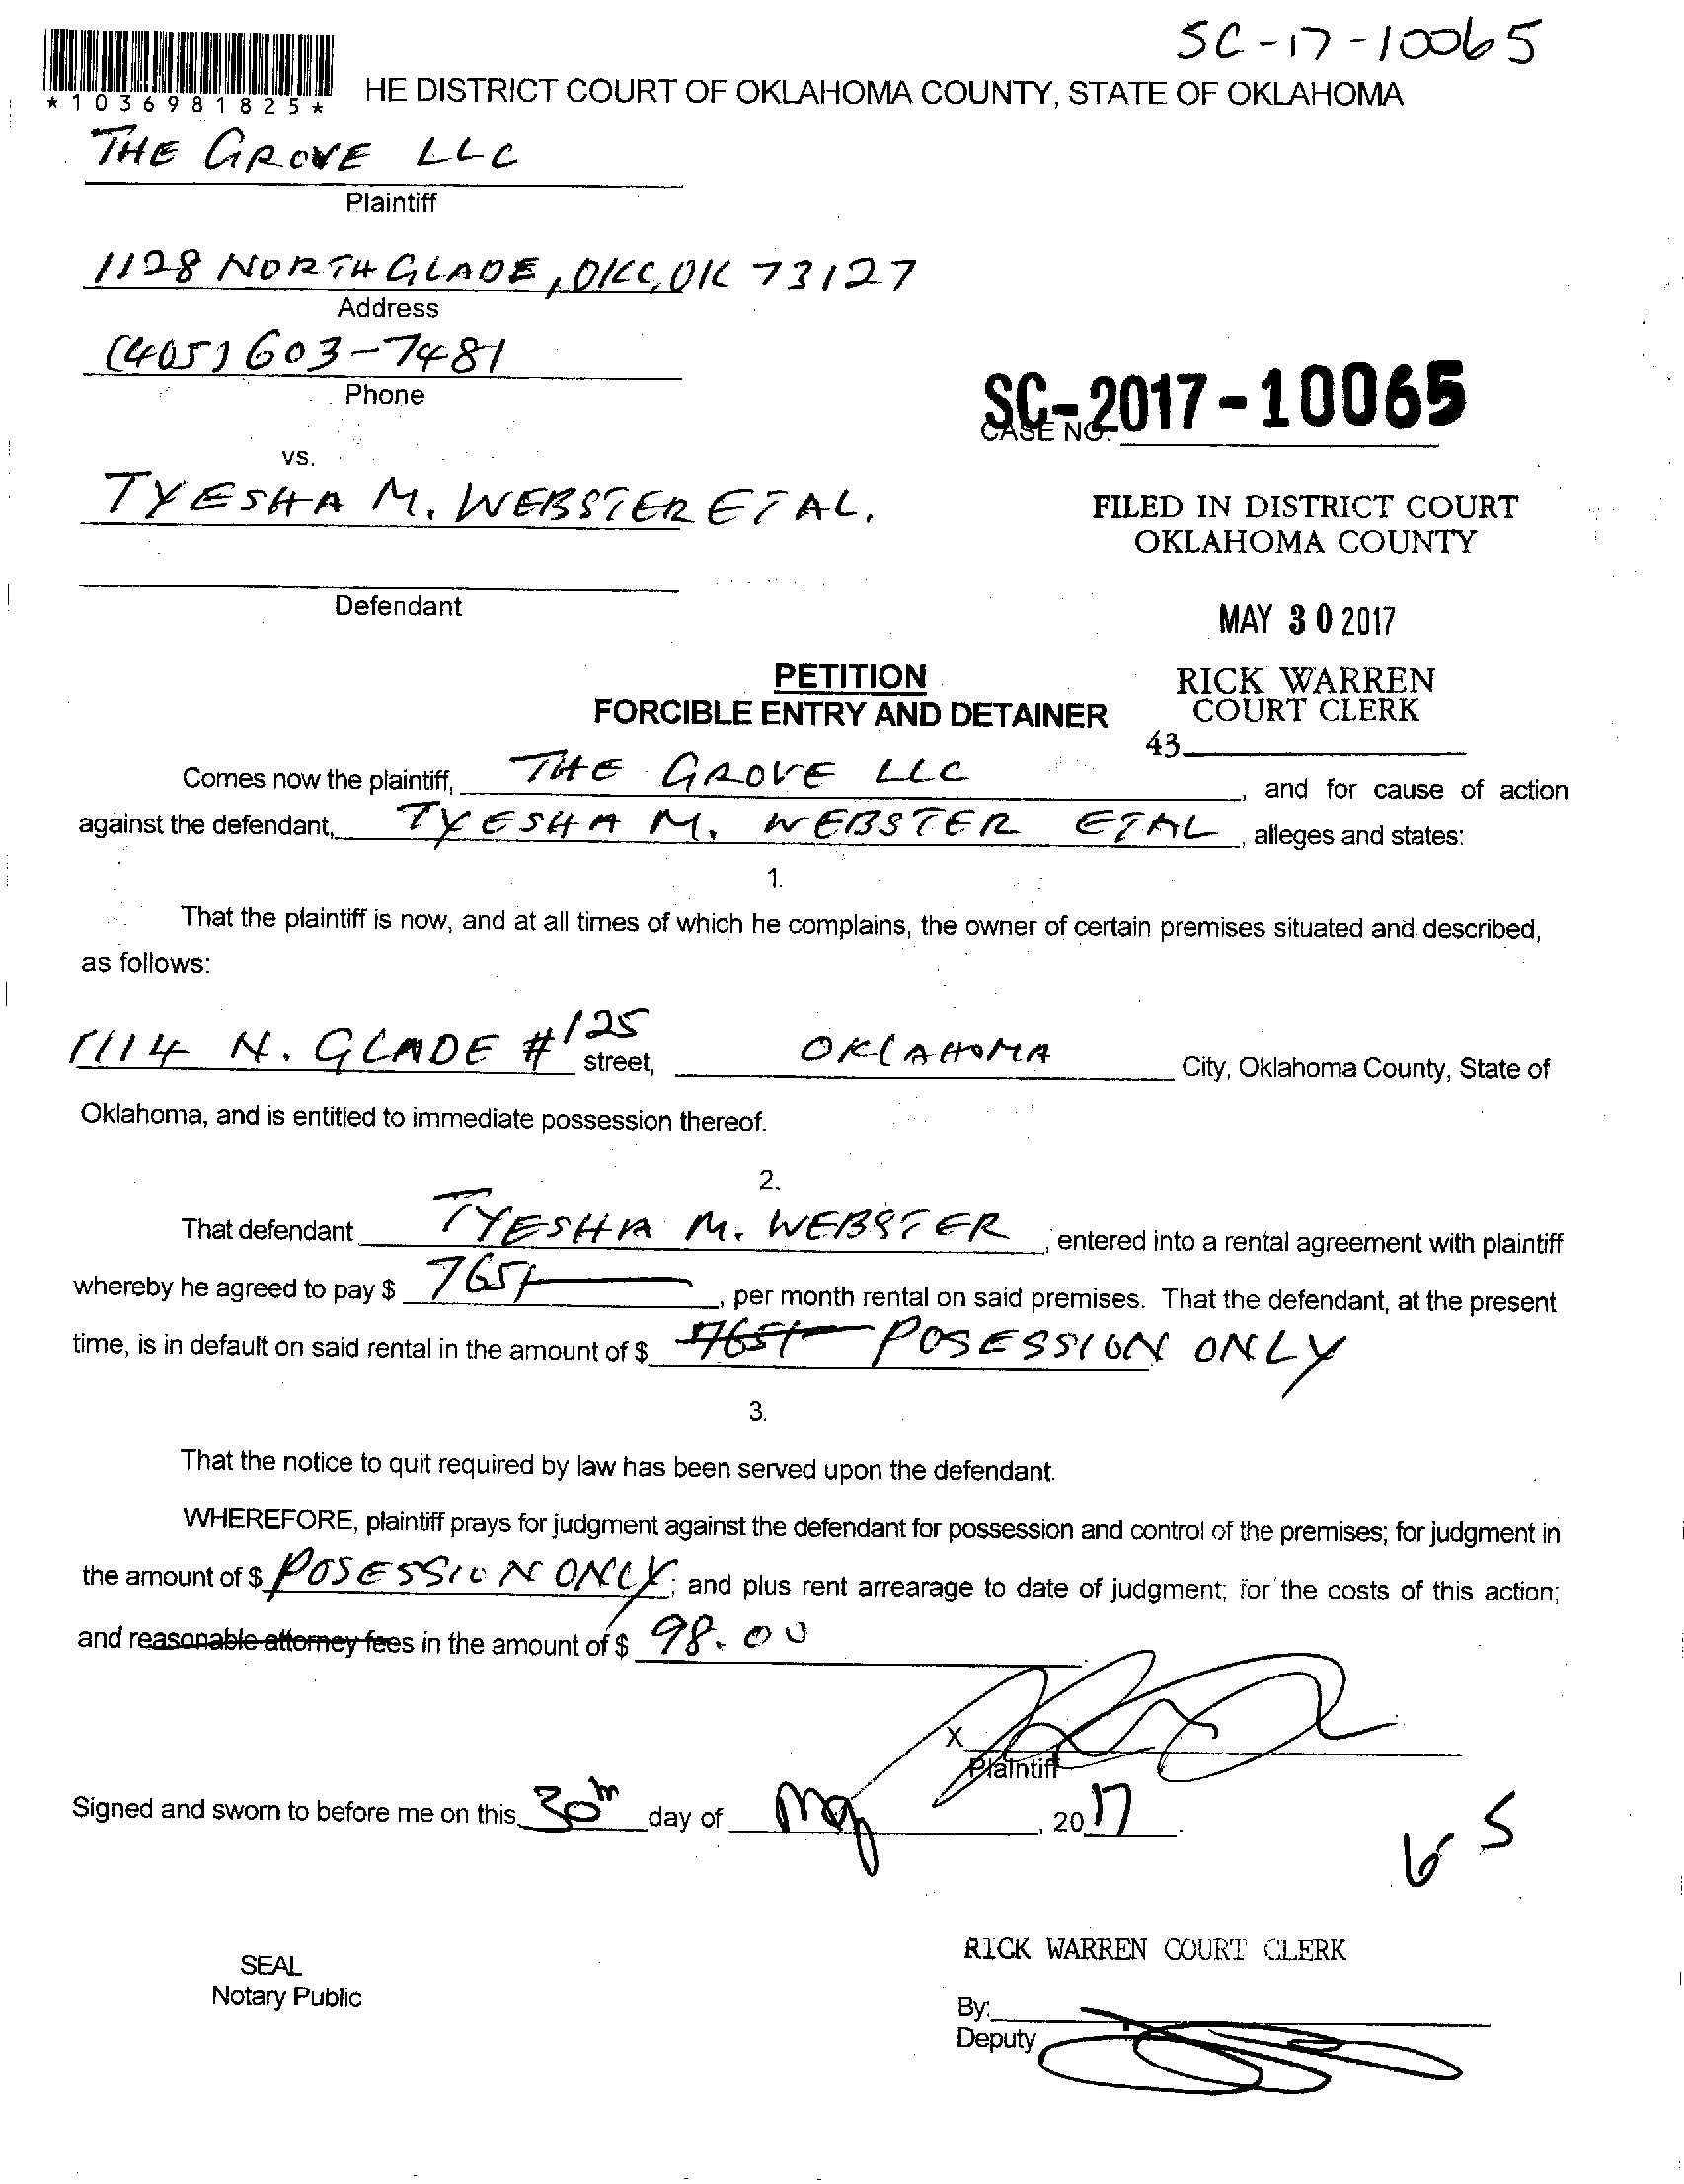 SC-17-10065
*1036981825*
HE DISTRICT COURT OF OKLAHOMA COUNTY, STATE OF OKLAHOMA
THE GROVE LLC
Plaintiff
1128 NORTH GLADE, OKC, OK 73127
Address
(405) 603-7481
Phone
SC-2017-10065
CASE NO.
vs.
TYESHA M. WEBSTER ETAL.
FILED IN DISTRICT COURT
OKLAHOMA COUNTY
Defendant
MAY 30 2017
PETITION
FORCIBLE ENTRY AND DETAINER
RICK WARREN
COURT CLERK
43
Comes now the plaintiff, THE GROVE LLC, and for cause of action
against the defendant, TYESHA M. WEBSTER ETAL, alleges and states:
1.
That the plaintiff is now, and at all times of which he complains, the owner of certain premises situated and described,
as follows:
1114 N. GLADE #125 street, OKLAHOMA City, Oklahoma County, State of
Oklahoma, and is entitled to immediate possession thereof.
2.
That defendant TYESHA M. WEBSTER, entered into a rental agreement with plaintiff
whereby he agreed to pay $ 765/-, per month rental on said premises. That the defendant, at the present
time, is in default on said rental in the amount of $ 765/- POSESSION ONLY
3.
That the notice to quit required by law has been served upon the defendant.
WHEREFORE, plaintiff prays for judgment against the defendant for possession and control of the premises; for judgment in
the amount of $ POSESSION ONLY; and plus rent arrearage to date of judgment; for the costs of this action;
and reasonable attorney fees in the amount of $ 98.00
X
Plaintiff
Signed and sworn to before me on this 30th day of May, 2017
RICK WARREN COURT CLERK
SEAL
Notary Public
By:
Deputy